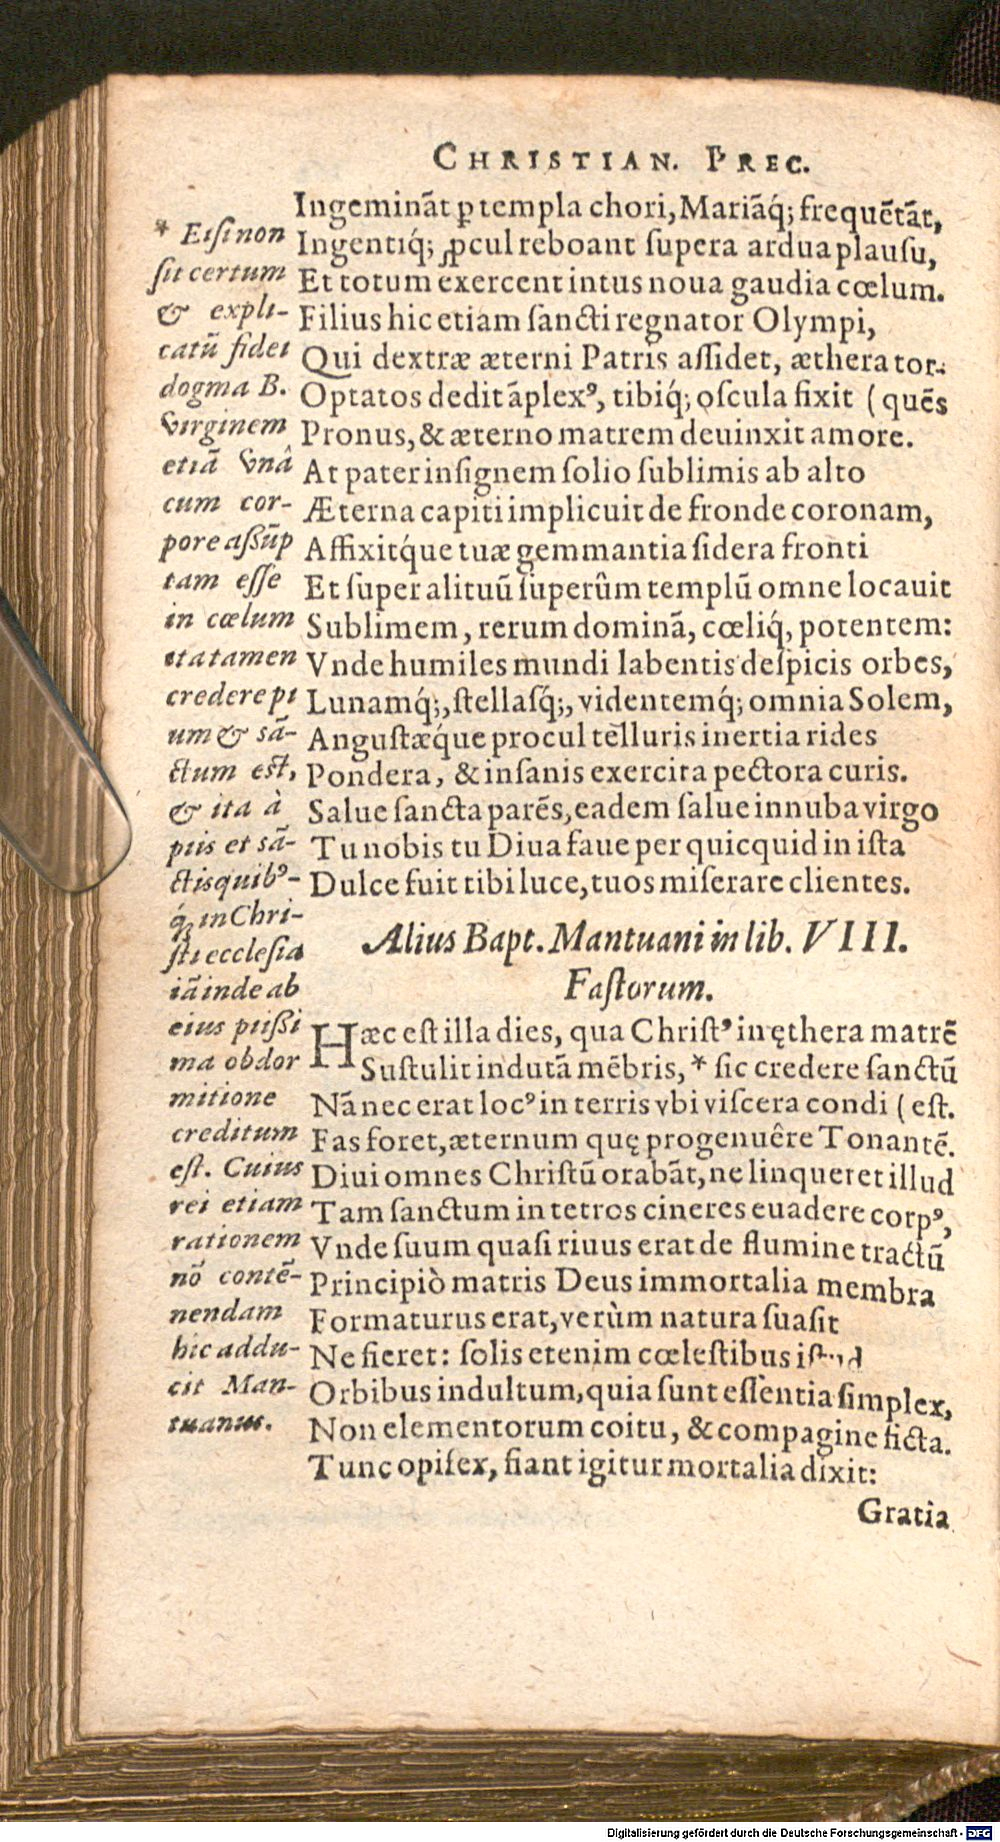 CHRISTIAN. PREC.
Ingeminãt ꝑ templa chori, Mariãq́; frequẽtãt,
Ingentiq́; ꝓcul reboant ſupera ardua plauſu,
Et totum exercent intus noua gaudia cœlum.
Filius hic etiam ſancti regnator Olympi,
Qui dextræ æterni Patris aſſidet, æthera tor-
Optatos dedit ãplexꝰ, tibiq́; oſcula fixit (quẽs
Pronus, & æterno matrem deuinxit amore.
At pater inſignem ſolio ſublimis ab alto
Æterna capiti implicuit de fronde coronam,
Affixitq́ue tuæ gemmantia ſidera fronti
Et ſuper alituũ ſuperûm templũ omne locauit
Sublimem, rerum dominã, cœliq́, potentem:
Vnde humiles mundi labentis deſpicis orbes,
Lunamq́;, ſtellaſq́;, videntemq́; omnia Solem,
Anguſtæq́ue procul telluris inertia rides
Pondera, & inſanis exercita pectora curis.
Salue ſancta parẽs, eadem ſalue innuba virgo
Tu nobis tu Diua faue per quicquid in iſta
Dulce fuit tibi luce, tuos miſerare clientes.
Alius Bapt. Mantuani in lib. VIII.
Faſtorum.
Hæc eſt illa dies, qua Chriſtꝰ in ęthera matrẽ
Suſtulit indutã mẽbris, * ſic credere ſanctũ
Nã nec erat locꝰ in terris vbi viſcera condi (eſt.
Fas foret, æternum quę progenuêre Tonantẽ.
Diui omnes Chriſtũ orabãt, ne linqueret illud
Tam ſanctum in tetros cineres euadere corpꝰ,
Vnde ſuum quaſi riuus erat de flumine tractũ
Principiò matris Deus immortalia membra
Formaturus erat, verùm natura ſuaſit
Ne fieret: ſolis etenim cœleſtibus
Orbibus indultum, quia ſunt eſſentia ſimplex,
Non elementorum coitu, & compagine ficta.
Tunc opifex, fiant igitur mortalia dixit:
Gratia
* Etſi non
ſit certum
& expli-
catũ fidei
dogma B.
Virginem
etiã vnâ
cum cor-
pore aßũp
tam eſſe
in cœlum
ita tamen
credere pi
um & sã-
ctum eſt,
& ita à
piis et sã-
ctis quibꝰ-
q́; in Chri-
ſti eccleſia
iã inde ab
eius pijßi
ma obdor
mitione
creditum
eſt. Cuius
rei etiam
rationem
nõ contẽ-
nendam
hic addu-
cit Man-
tuanus.
Digitalisierung gefördert durch die Deutsche Forschungsgemeinschaft - DFG